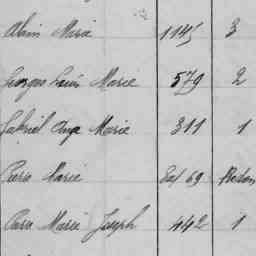 Alain Marie 1145 3
Georges Louis Marie 579 2
Gabriel Ange Marie 311 1
Pierre Marie Ext 69 Redon
Pierre Marie Joseph 442 1